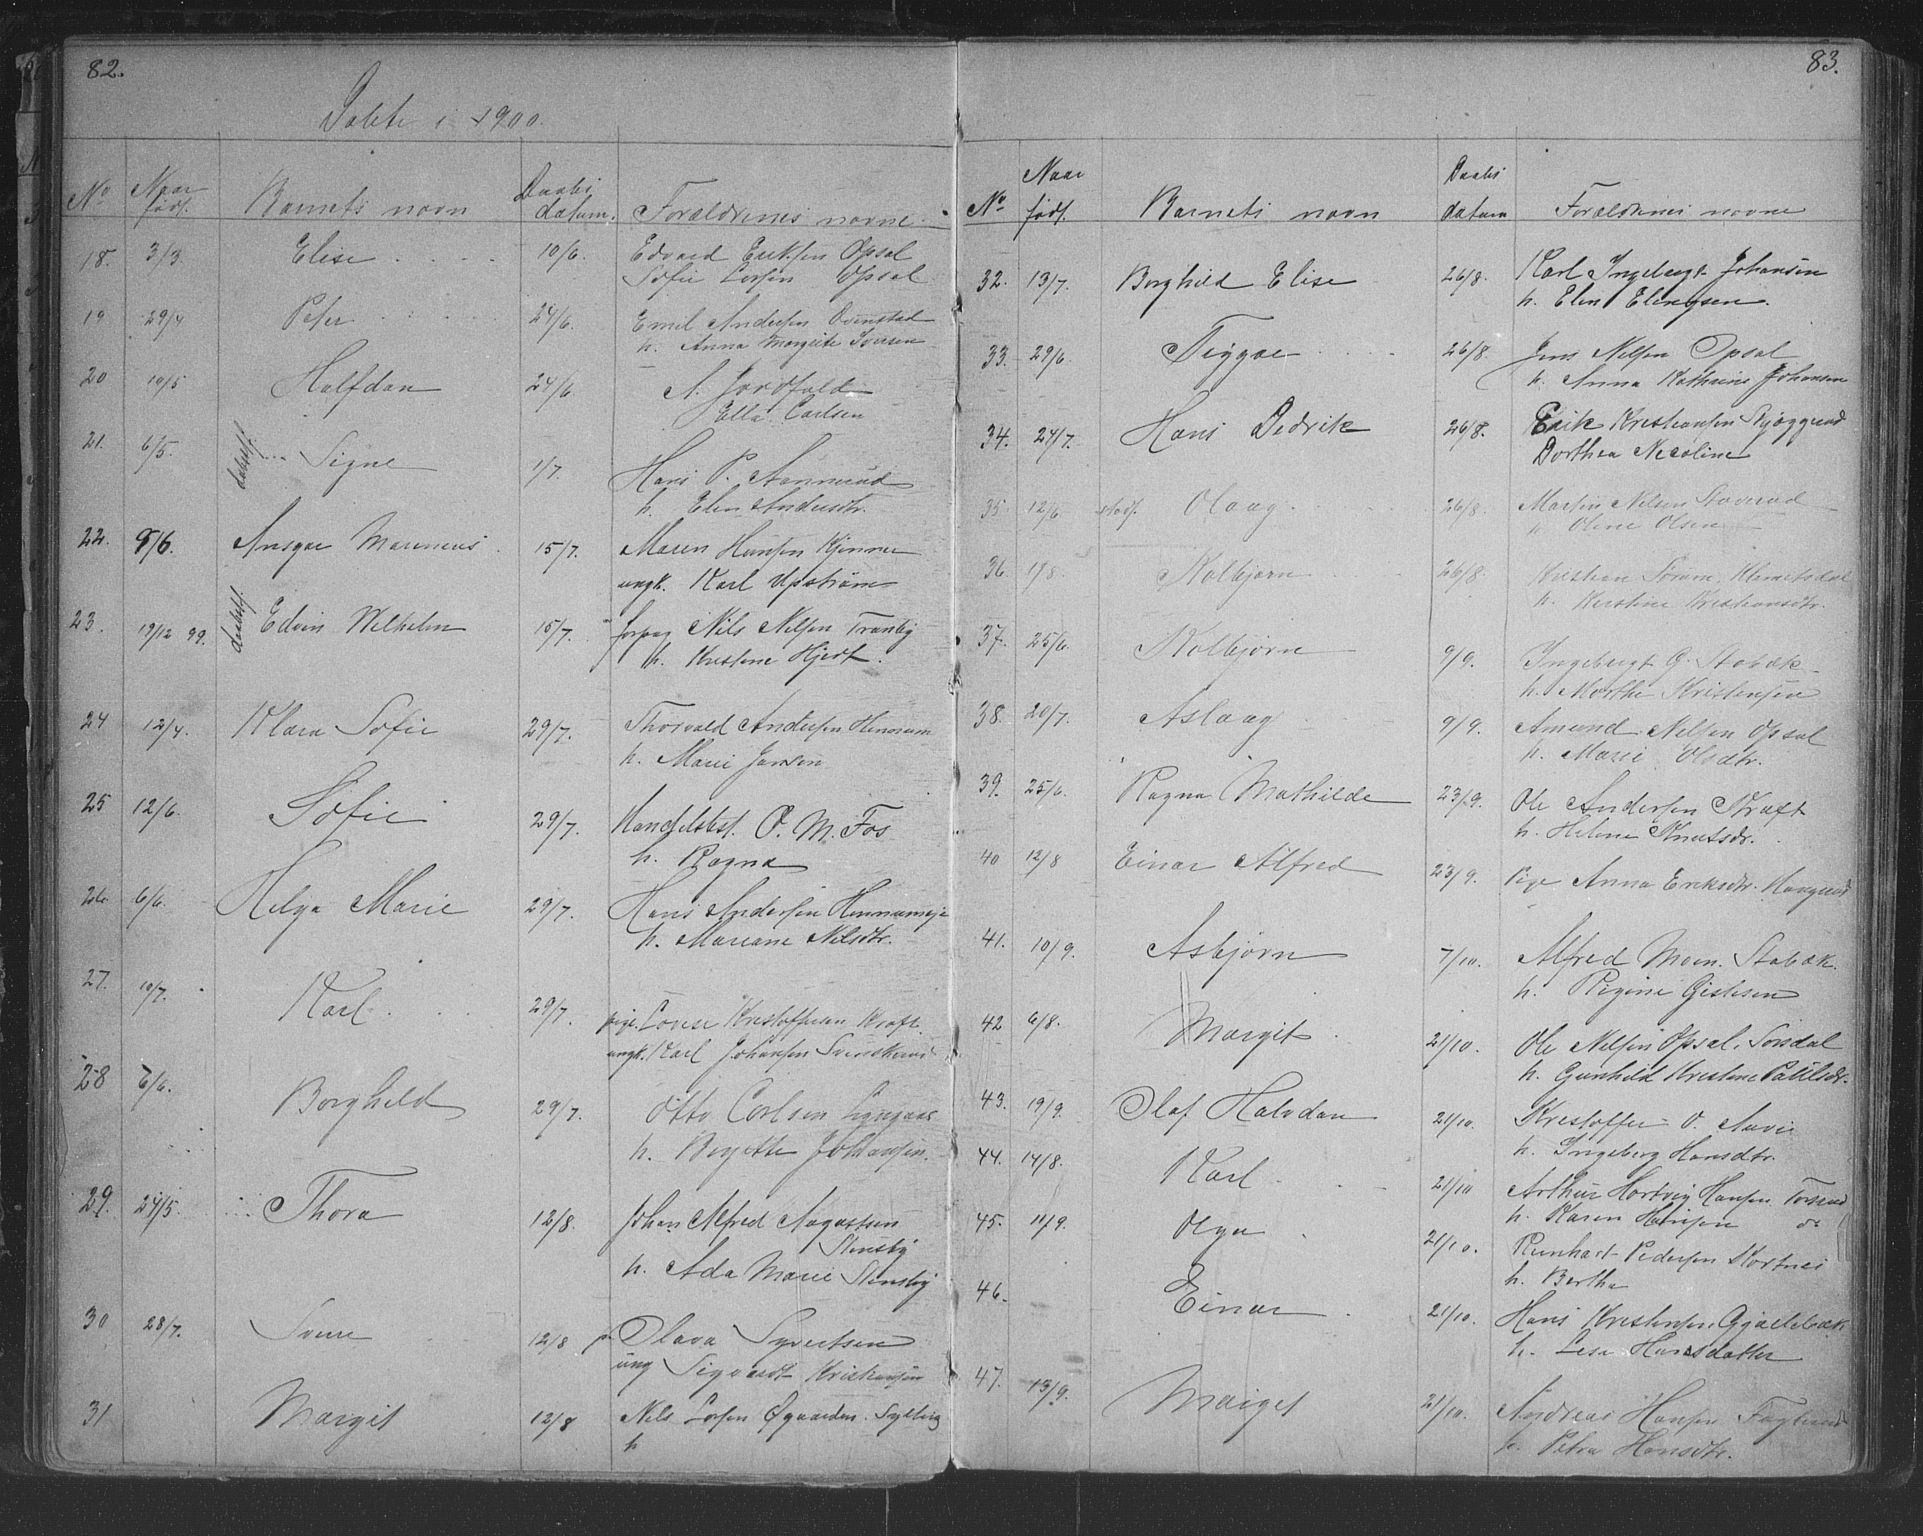 82.
Døbte i 1900.
No Naar født. Barnets navn Daabs datum. Forældrenes navne.
18. 3/3. Elise 10/6. Edvard Eriksen Opsal
Sofie Larsen Opsal
19 29/4 Peter 24/6. Emil Andersen
h. Anna Margrete Iversen
20 10/5 Halfdan 24/6. A. Jordfald
Ella Carlsen
21. 6/5. Signe 1/7. Hans P.
h. Elen Andersdtr.
22. 9/6. Ansgar Marinius 15/7. Maren Hansen Kjenner
ungk. Karl Upström
23. 19/12 99. Edvin Wilhelm 15/7. forpag Nils Nilsen Tranby
h. Kristine Hjert.
24 12/4. Klara Sofie 29/7. Thorvald Andersen Hennum
h. Marie Jansen
25 12/6. Sofie 29/7. Handelsbest. O. M. Fos
h. Ragna
26. 6/6. Helga Marie 29/7. Hans Andersen
h. Mariane Nilsdtr.
27. 10/7. Karl 29/7. pige. Lovise Kristoffersen Kraft.
ungk. Karl Johansen
28 6/6. Borghild 29/7. Otto Carlsen
h. Birgitte Johansen.
29. 24/5. Thora 12/8. Johan Alfred Augustsen
Stensby
h. Ada Marie Stensby
30 28/7. Sverre 12/8 p. Olava Syvertsen
ung Sigvardt Kristiansen
31 Margit 12/8 Nils Larsen Øgaarden. Sylling
h
83.
No Naar født. Barnets navn Daabs datum Forældrenes navne
32. 13/7. Borghild Elise 26/8. Karl Ingebregt Johansen
h. Elen Elingsen.
33. 29/6. Trygve 26/8. Jens Nilsen Opsal
h. Anna Kathrine Johansen
34. 27/7. Hans Dedrik 26/8. Erik Kristiansen
Dorthea Nicoline
35. 12/6 Olaug 26/8. Martin Nilsen
h Oline Olsen
36. 1/8. Kolbjørn 26/8. Kristian
h. Kirstine Kristiansdtr.
37. 25/6. Kolbjørn 9/9. Ingebregt G. Stabæk
h. Marthe Kristensen
38. 20/7. Aslaug 9/9. Amund Nilsen Opsal
h. Marie Olsdtr.
39. 25/6. Ragna Mathilde 23/9. Ole Andersen Kraft
h. Helene Knutsdr.
40 12/8 Einar Alfred 23/9. Pige Anna Eriksdtr.
41. 10/9. Asbjørn 7/10. Alfred Moen. Stabæk.
h. Regine
42 6/8. Margit 21/10. Ole Nilsen Opsal.
h. Gunhild Kristine Paulsdr.
43. 19/9. Olaf Halvdan 21/10. Kristoffer O.
h. Ingeborg Hansdtr.
44. 14/8. Karl 21/10 Arthur Hartvig Hansen
h. Karen Hansen do
45. 11/9. Olga 21/10. Reinhart Pedersen
h. Berthe
46. Einar 21/10. Hans Kristensen. Gjællebæk
h. Lise Hansdatter
47. 13/9. Margit 21/10. Andreas Hansen
h. Petra Hansdtr.